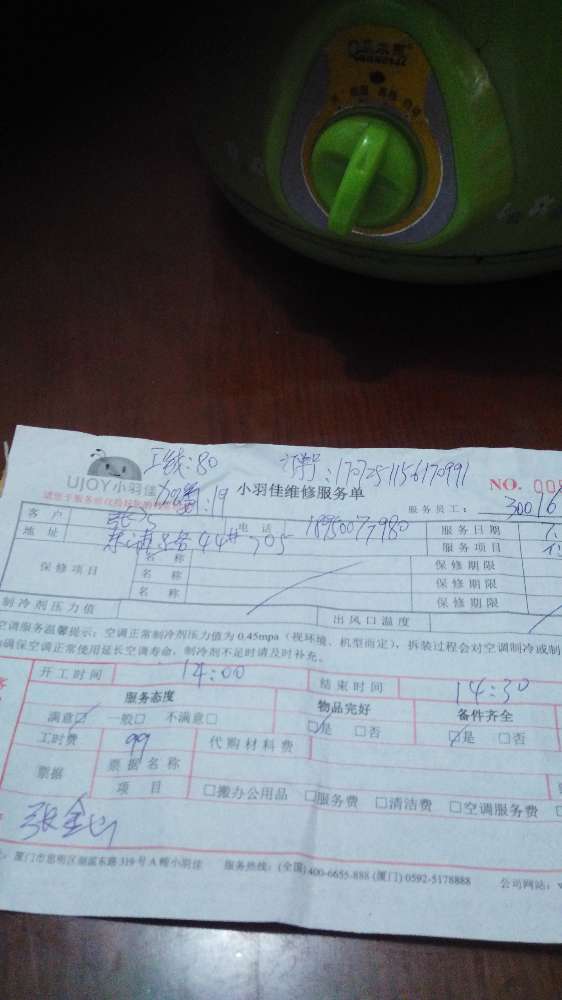 正我:80 订单号:170725115617099
UJOY小羽佳 加蛋:19 小羽佳维修服务单 NO. 008
服务员工: 30016
客户 电话 服务日期
地址 44# 705 服务项目
保修项目 名称 保修期限
名称 保修期限
名称 保修期限
制冷剂压力值 出风口温度
空调服务温馨提示:空调正常制冷剂压力值为0.45mpa(视环境、机型而定),拆装过程会对空调制冷或制
确保空调正常使用延长空调寿命,制冷剂不足时请及时补充。
开工时间 14:00 结束时间 14:30
服务态度 物品完好 备件齐全
满意☑ 一般□ 不满意□ ☑是 □否 ☑是 □否
工时费 99 代购材料费
票据 票据名称
项目 □搬办公用品 □服务费 □清洁费 □空调服务费
厦门市思明区湖滨东路319号A幢小羽佳 服务热线:(全国)400-6655-888 (厦门)0592-5178888 公司网站: